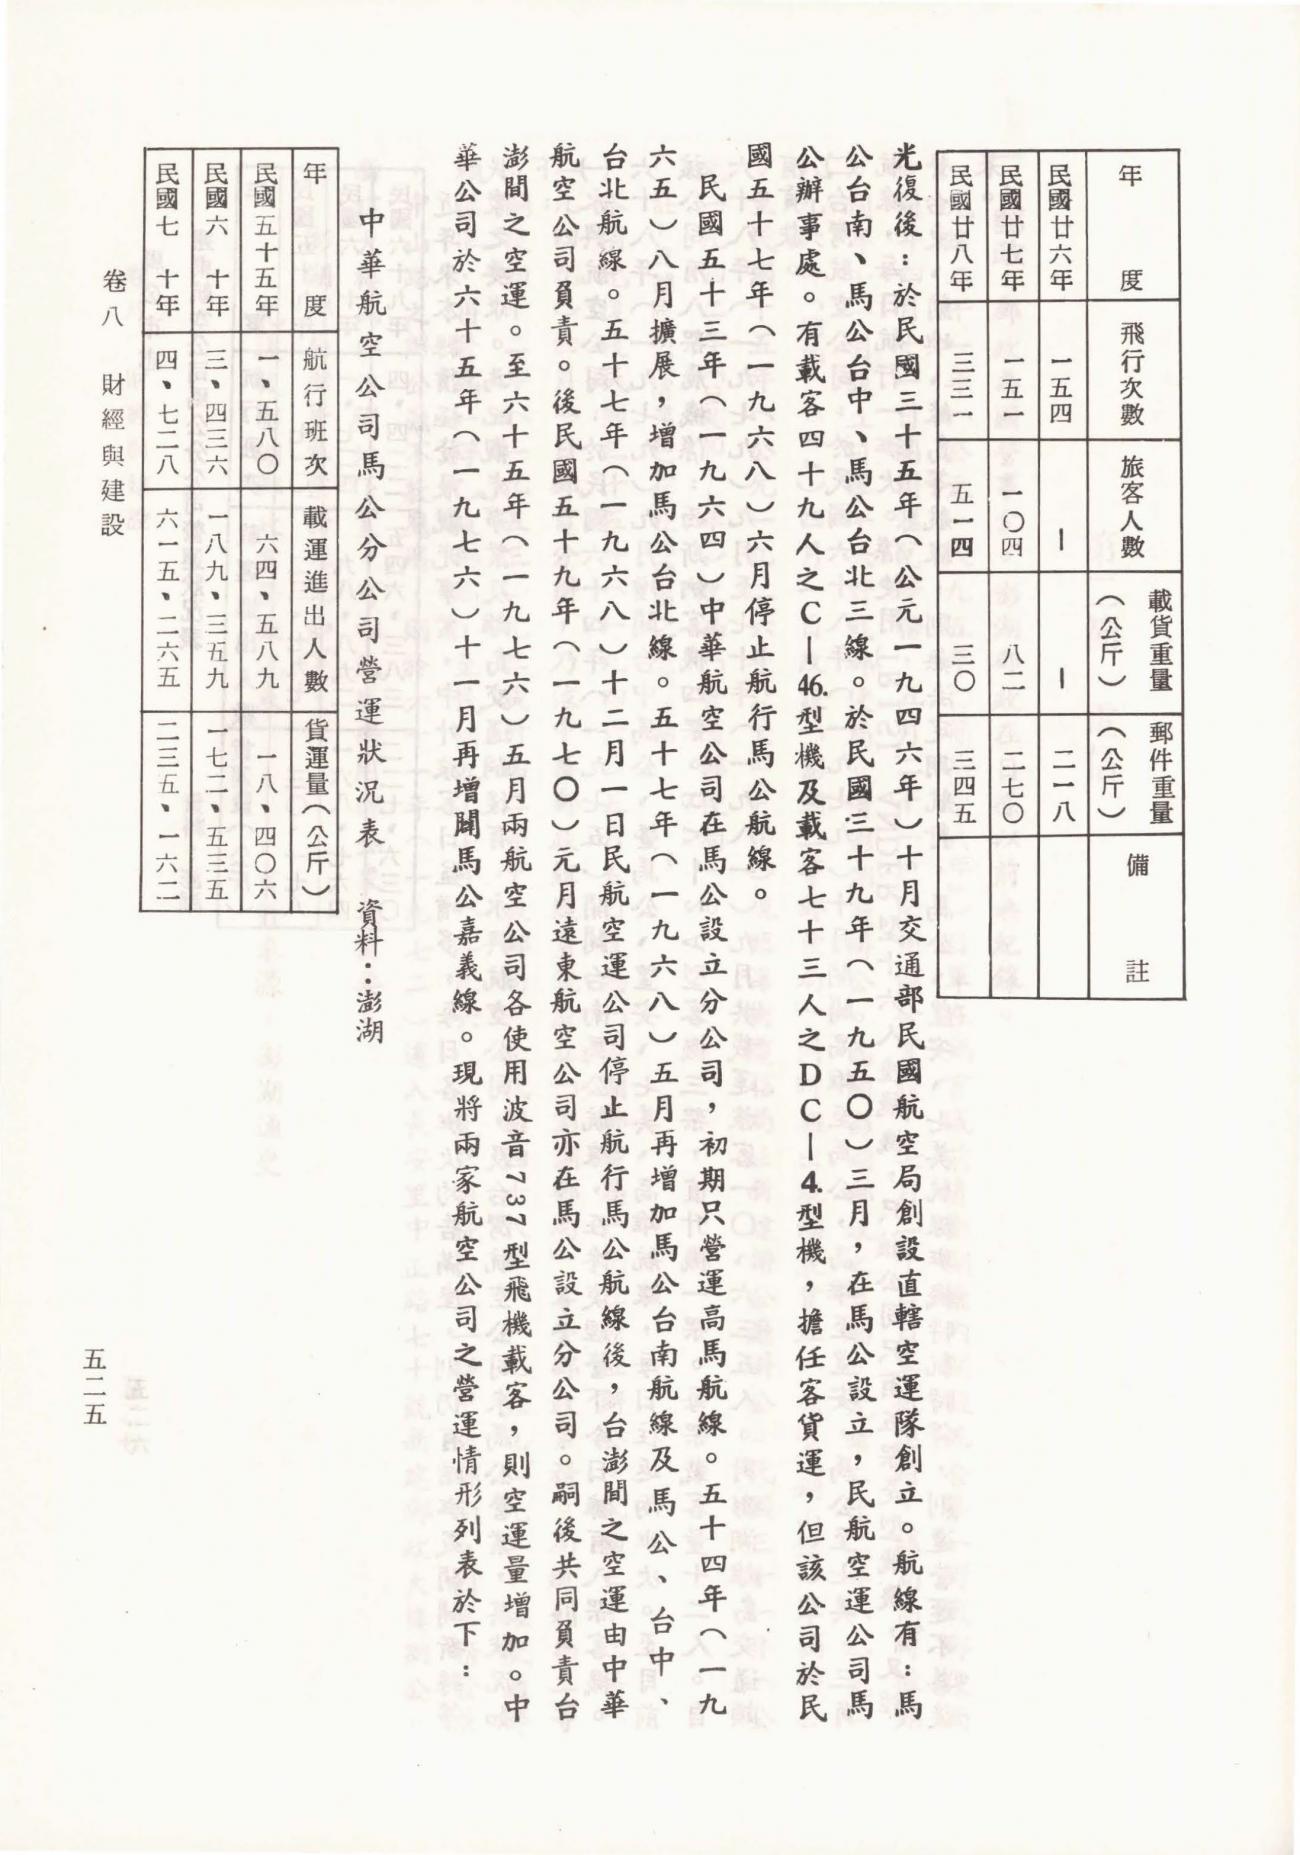 年度 飛行次數 旅客人數 載貨重量（公斤） 郵件重量（公斤） 備註
民國廿六年 一五四 － － 二一八
民國廿七年 一五一 一〇四 八二 二七〇
民國廿八年 三三一 五一四 三〇 三四五
光復後：於民國三十五年（公元一九四六年）十月交通部民國航空局創設直轄空運隊創立。航線有：馬
公台南、馬公台中、馬公台北三線。於民國三十九年（一九五〇）三月，在馬公設立，民航空運公司馬
公辦事處。有載客四十九人之C－46.型機及載客七十三人之DC－4.型機，擔任客貨運，但該公司於民
國五十七年（一九六八）六月停止航行馬公航線。
民國五十三年（一九六四）中華航空公司在馬公設立分公司，初期只營運高馬航線。五十四年（一九
六五）八月擴展，增加馬公台北線。五十七年（一九六八）五月再增加馬公台南航線及馬公、台中、
台北航線。五十七年（一九六八）十二月一日民航空運公司停止航行馬公航線後，台澎間之空運由中華
航空公司負責。後民國五十九年（一九七〇）元月遠東航空公司亦在馬公設立分公司。嗣後共同負責台
澎間之空運。至六十五年（一九七六）五月兩航空公司各使用波音737型飛機載客，則空運量增加。中
華公司於六十五年（一九七六）十一月再增闢馬公嘉義線。現將兩家航空公司之營運情形列表於下：
中華航空公司馬公分公司營運狀況表 資料：澎湖
年度 航行班次 載運進出人數 貨運量（公斤）
民國五十五年 一、五八〇 六四、五八九 一八、四〇六
民國六十年 三、四三六 一八九、三五九 一七二、五三五
民國七十年 四、七二八 六一五、二六五 二三五、一六二
卷八 財經與建設
五二五